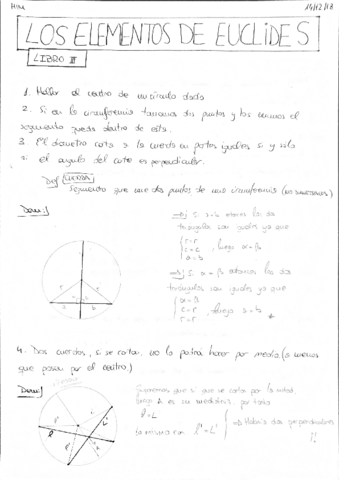 HM
14/12/18
LOS ELEMENTOS DE EUCLIDES
LIBRO III
1. Hallar el centro de un círculo dado
2. Si en la circunferencia tomamos dos puntos y los unimos el
segmento queda dentro de esta.
3. El diámetro corta a la cuerda en partes iguales si y solo
si el ángulo del corte es perpendicular.
Def CUERDA
Segmento que une dos puntos de una circunferencia (no diametrales)
Dem:|
⇒| Si a=b entonces los dos
triángulos son iguales ya que
r=r
c=c , luego α=β
a=b
⇐| Si α=β entonces los dos
triángulos son iguales ya que
α=β
c=c , luego a=b
r=r
4. Dos cuerdas, si se cortan, no lo podrán hacer por medio (a menos
que pasen por el centro)
Dem:|
Supongamos que sí que se corta por la mitad,
luego L es su mediatriz, por tanto
l=L
lo mismo con l'=L' ⇒ Habría dos perpendiculares
!!